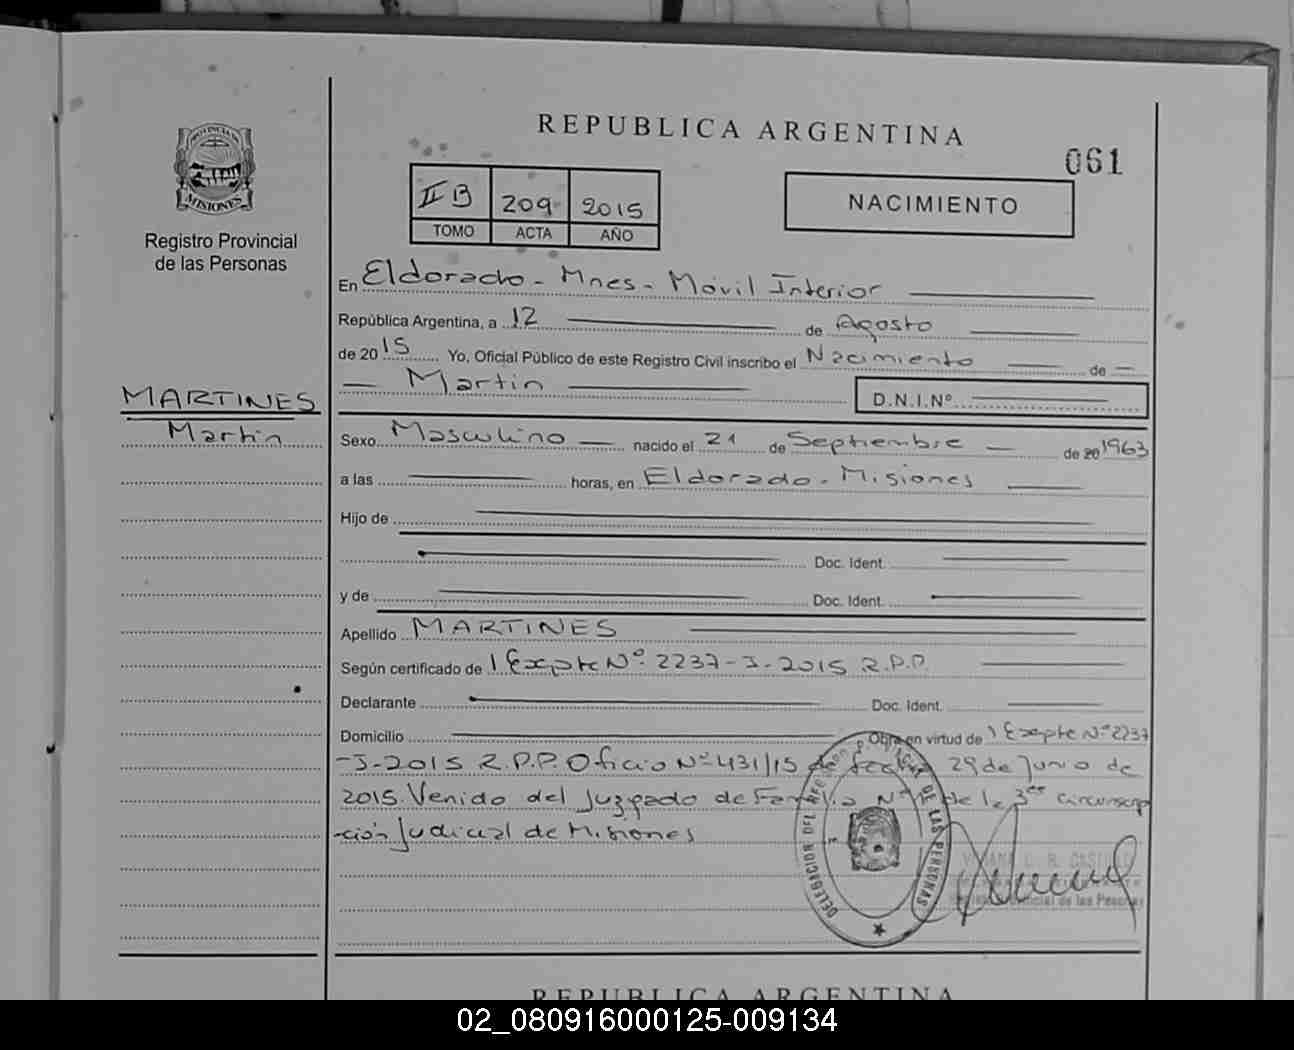 REPUBLICA ARGENTINA
061
PROVINCIA DE
MISIONES
Registro Provincial
de las Personas
II B 209 2015
TOMO ACTA AÑO
NACIMIENTO
En Eldorado - Mnes - Móvil Interior
República Argentina, a 12 de Agosto
de 2015 Yo, Oficial Público de este Registro Civil inscribo el Nacimiento de
Martin D.N.I.Nº
MARTINES
Martin
Sexo Masculino nacido el 21 de Septiembre de 20 1963
a las horas, en Eldorado - Misiones
Hijo de
Doc. Ident.
y de Doc. Ident.
Apellido MARTINES
Según certificado de 1 Expte Nº 2237-I-2015 R.P.P.
Declarante Doc. Ident.
Domicilio Obra en virtud de 1 Expte Nº 2237
-I-2015 R.P.P. Oficio Nº 431/15 de fecha 29 de Junio de
2015. Venido del Juzgado de Familia Nº 1 de la 3ra Circunscrip
-ción Judicial de Misiones
DELEGACION DEL REG. DE LAS PERSONAS
R. CASTILLO
Registro Provincial de las Personas
REPUBLICA ARGENTINA
02_080916000125-009134